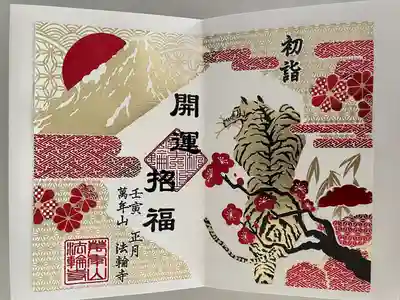 初詣
開運招福
壬寅 正月
萬年山 法輪寺